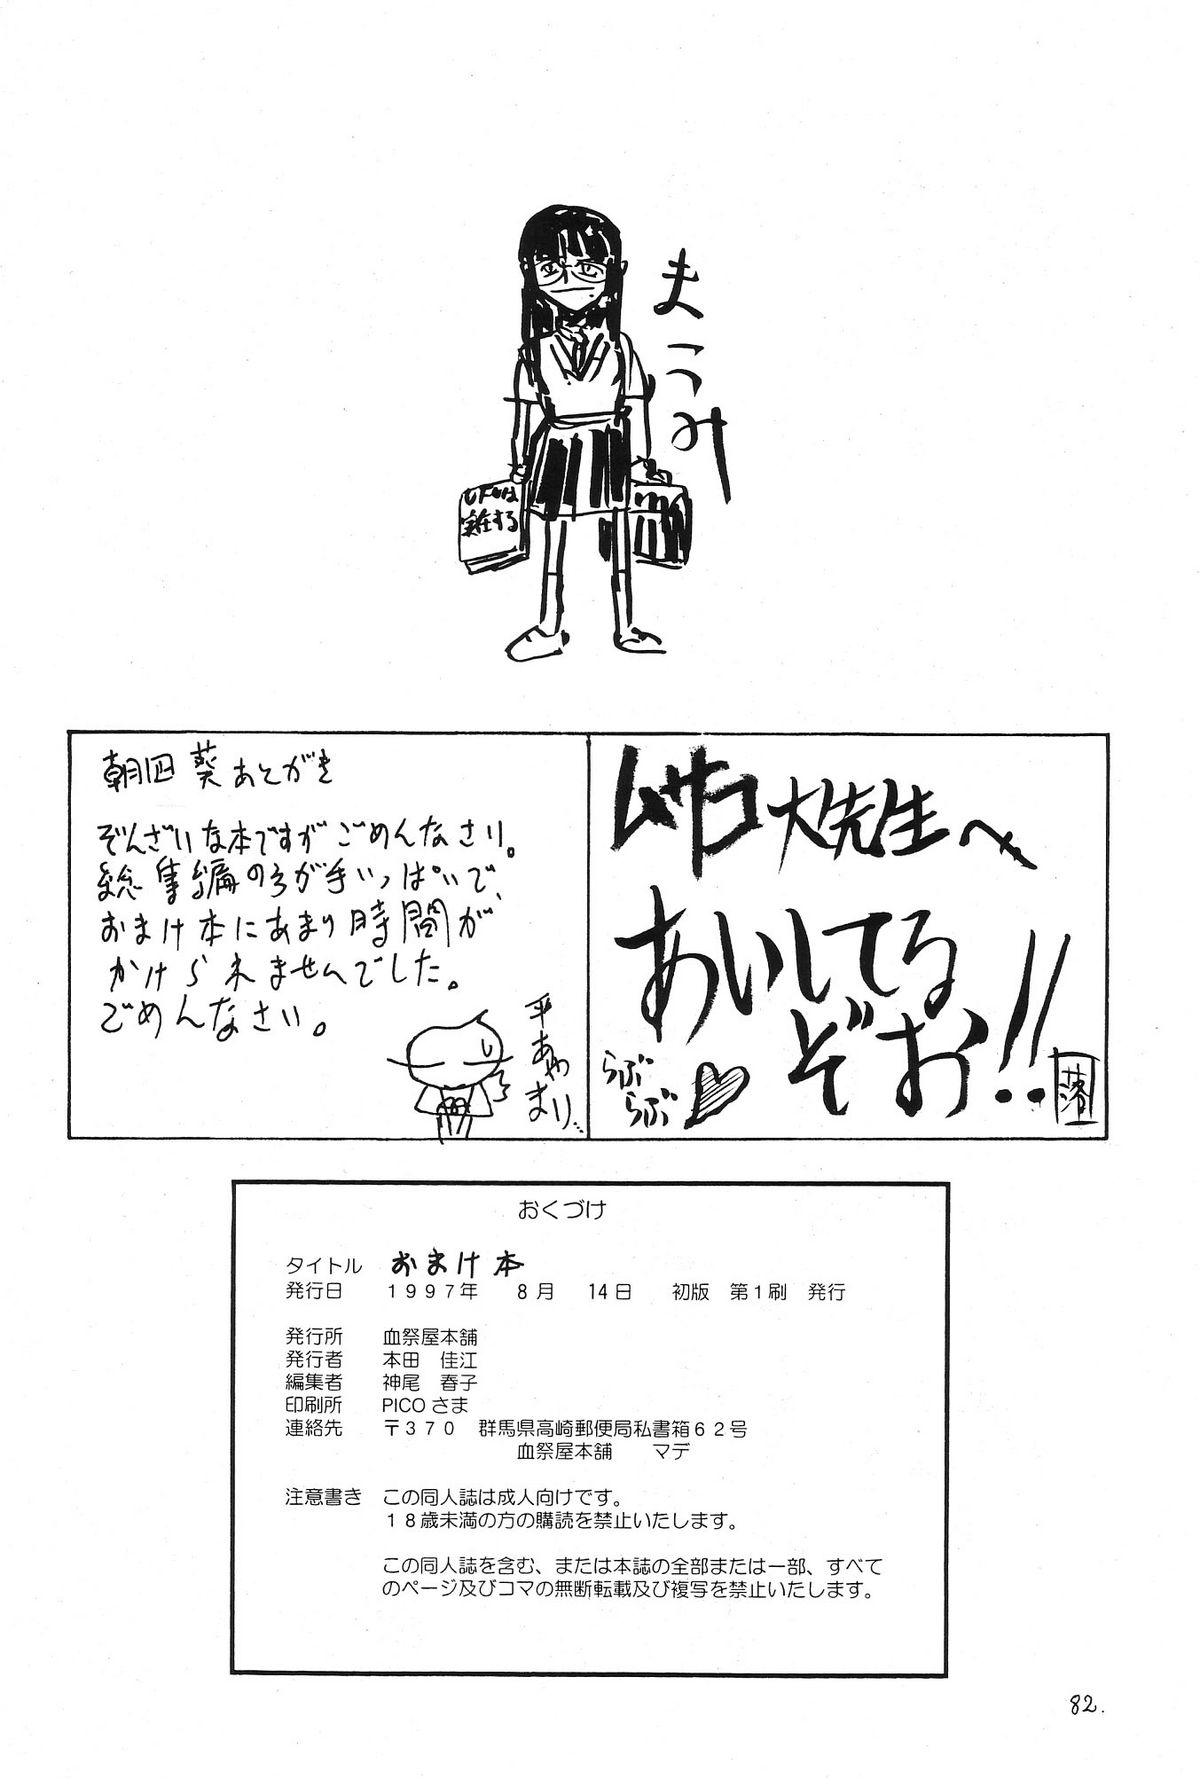 まこみ
UFOは
実在する
ムサコ大先生へ
あいしてる
ぞお!!
らぶ
らぶ
落
朝凪 葵 あとがき
ぞんざいな本ですが ごめんなさい。
総集編のろが手いっぱいで、
おまけ本にあまり時間が
かけられませんでした。
ごめんなさい。
平あやまり…
おくづけ
タイトル おまけ本
発行日 1997年 8月 14日 初版 第1刷 発行
発行所 血祭屋本舗
発行者 本田 佳江
編集者 神尾 春子
印刷所 PICOさま
連絡先 〒370 群馬県高崎郵便局私書箱62号
血祭屋本舗 マデ
注意書き この同人誌は成人向けです。
18歳未満の方の購読を禁止いたします。
この同人誌を含む、または本誌の全部または一部、すべて
のページ及びコマの無断転載及び複写を禁止いたします。
82.